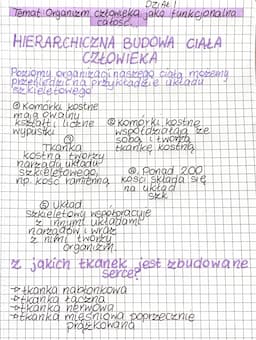 DZIAŁ 1
Temat: Organizm człowieka jako funkcjonalna
całość.
HIERARCHICZNA BUDOWA CIAŁA
CZŁOWIEKA
Poziomy organizacji naszego ciała możemy
prześledzić na przykładzie układu
szkieletowego
① Komórki kostne
mają owalny
kształt i liczne
wypustki
② Komórki kostne
współdziałają ze
sobą i tworzą
tkankę kostną.
③
Tkanka
kostna tworzy
narządy układu
szkieletowego,
np. kość ramienną.
④ Ponad 200
kości składa się
na układ
szk.
⑤ Układ
szkieletowy współpracuje
z innymi układami
narządów i wraz
z nimi tworzy
organizm.
Z jakich tkanek jest zbudowane
serce?
→tkanka nabłonkowa
→tkanka łączna
→tkanka nerwowa
→tkanka mięśniowa poprzecznie
prążkowana